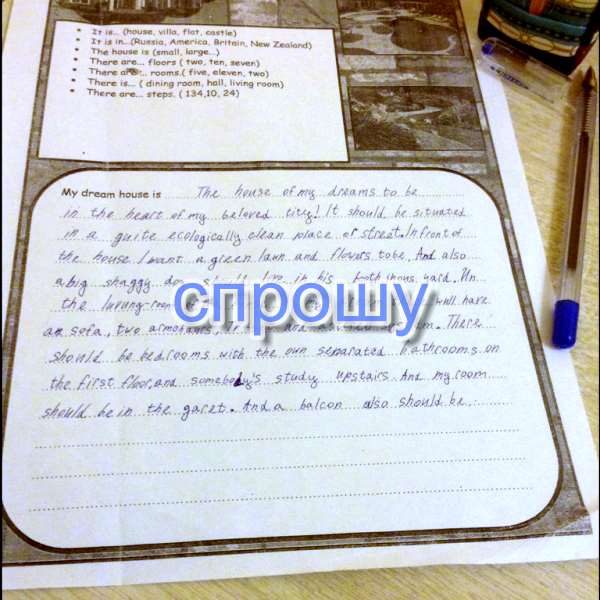 It is... (house, villa, flat, castle)
It is in..(Russia, America, Britain, New Zealand)
The house is (small, large...)
There are... floors ( two, ten, seven)
There are... rooms.( five, eleven, two)
There is... ( dining room, hall, living room)
There are... steps. ( 134,10, 24)
My dream house is The house of my dreams to be
in the heart of my beloved city! It should be situated
in a quite ecologically clean place or street. In front of
the house I want a green lawn and flowers to be. And also
a big shaggy dog in his yard.
the room will have
a sofa, two armchairs, and There
should be bedrooms with the own separated bathrooms on
the first floor, and somebody's study upstairs. And my room
should be in the garet. And a balcon also should be
спрошу